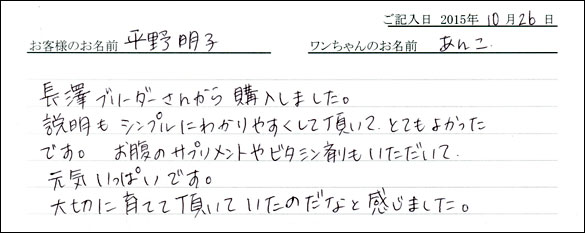 ご記入日 2015年 10月26日
お客様のお名前 平野明子 ワンちゃんのお名前 あんこ
長澤ブリーダーさんから購入しました。
説明もシンプルにわかりやすくして頂いて、とてもよかった
です。 お腹のサプリメントやビタミン剤もいただいて、
元気いっぱいです。
大切に育てて頂いていたのだなと感じました。